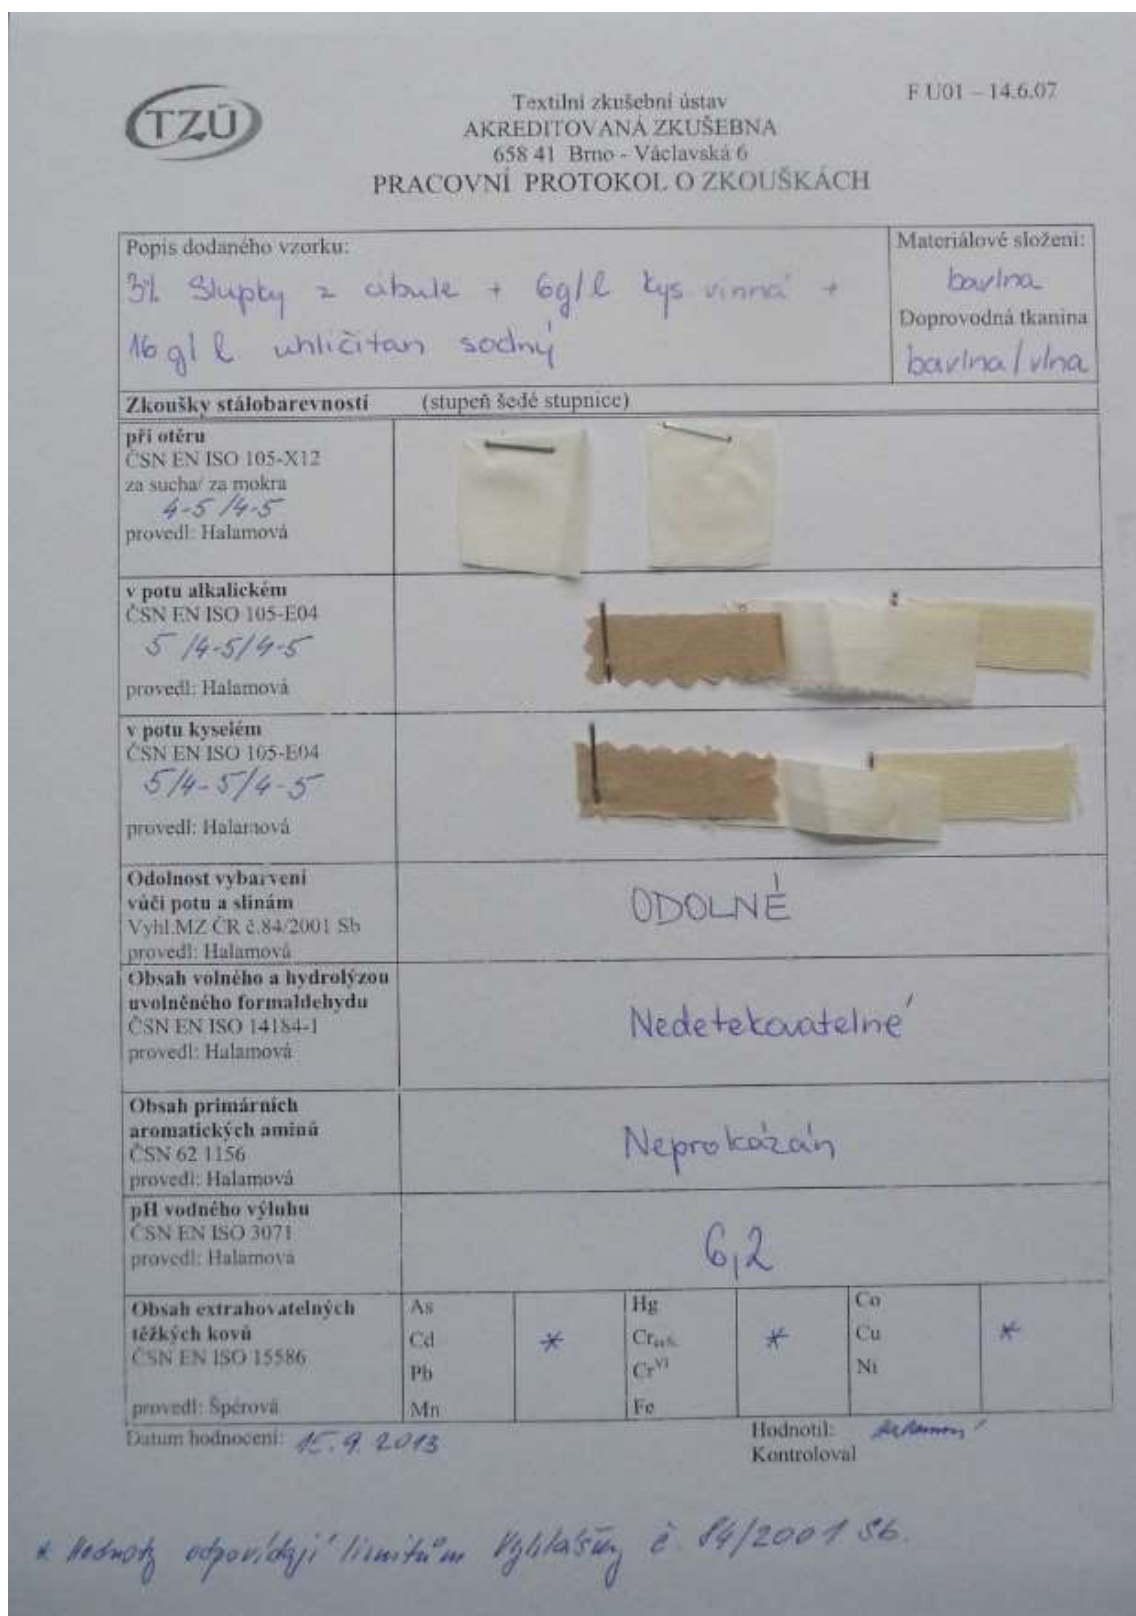 TZÚ
Textilní zkušební ústav
F U01 – 14.6.07
AKREDITOVANÁ ZKUŠEBNA
658 41 Brno - Václavská 6
PRACOVNÍ PROTOKOL O ZKOUŠKÁCH
Popis dodaného vzorku:
3% Slupky z cibule + 6g/l kys. vinná +
16 g/l uhličitan sodný
Materiálové složení:
bavlna
Doprovodná tkanina
bavlna/vlna
Zkoušky stálobarevností (stupeň šedé stupnice)
při otěru
ČSN EN ISO 105-X12
za sucha/ za mokra
4-5/4-5
provedl: Halamová
v potu alkalickém
ČSN EN ISO 105-E04
5/4-5/4-5
provedl: Halamová
v potu kyselém
ČSN EN ISO 105-E04
5/4-5/4-5
provedl: Halamová
Odolnost vybarvení
vůči potu a slinám
Vyhl.MZ ČR č.84/2001 Sb
provedl: Halamová
ODOLNÉ
Obsah volného a hydrolýzou
uvolněného formaldehydu
ČSN EN ISO 14184-1
provedl: Halamová
Nedetekovatelné
Obsah primárních
aromatických aminů
ČSN 62 1156
provedl: Halamová
Neprokázán
pH vodného výluhu
ČSN EN ISO 3071
provedl: Halamová
6,2
Obsah extrahovatelných
těžkých kovů
ČSN EN ISO 15586
provedl: Špérová
As
Cd *
Pb
Mn
Hg
Cr *
Cr VI
Fe
Co
Cu *
Ni
Datum hodnocení: 15.9.2013
Hodnotil:
Kontroloval
* Hodnoty odpovídají limitům Vyhlášky č. 84/2001 Sb.